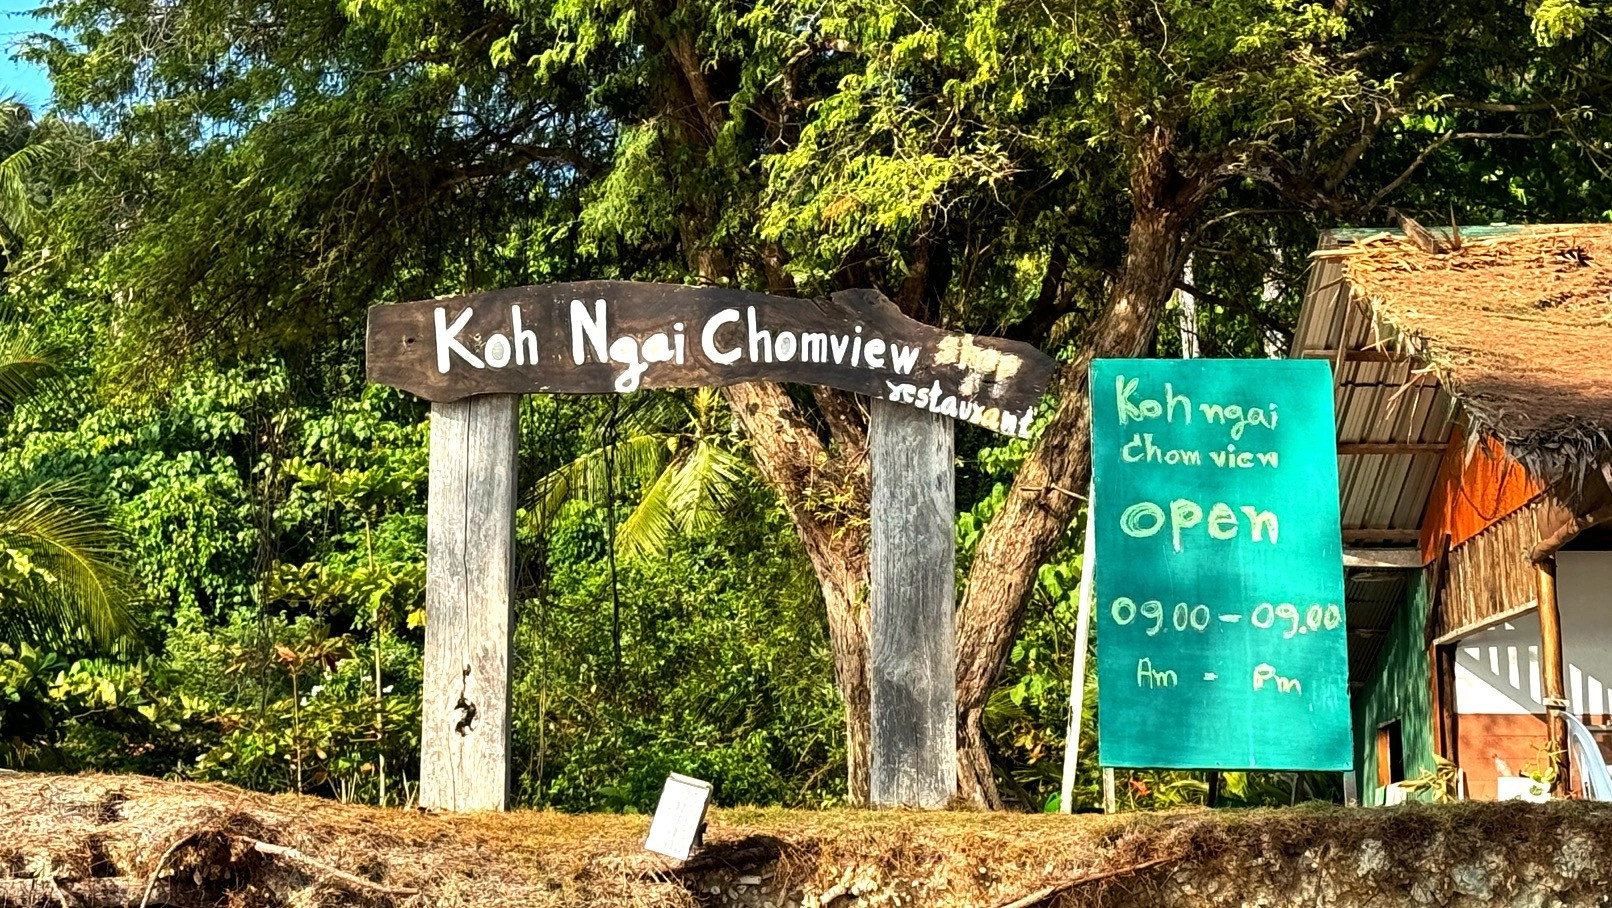 Koh Ngai Chomview
restaurant
Koh ngai
chom view
open
09.00 - 09.00
Am - Pm